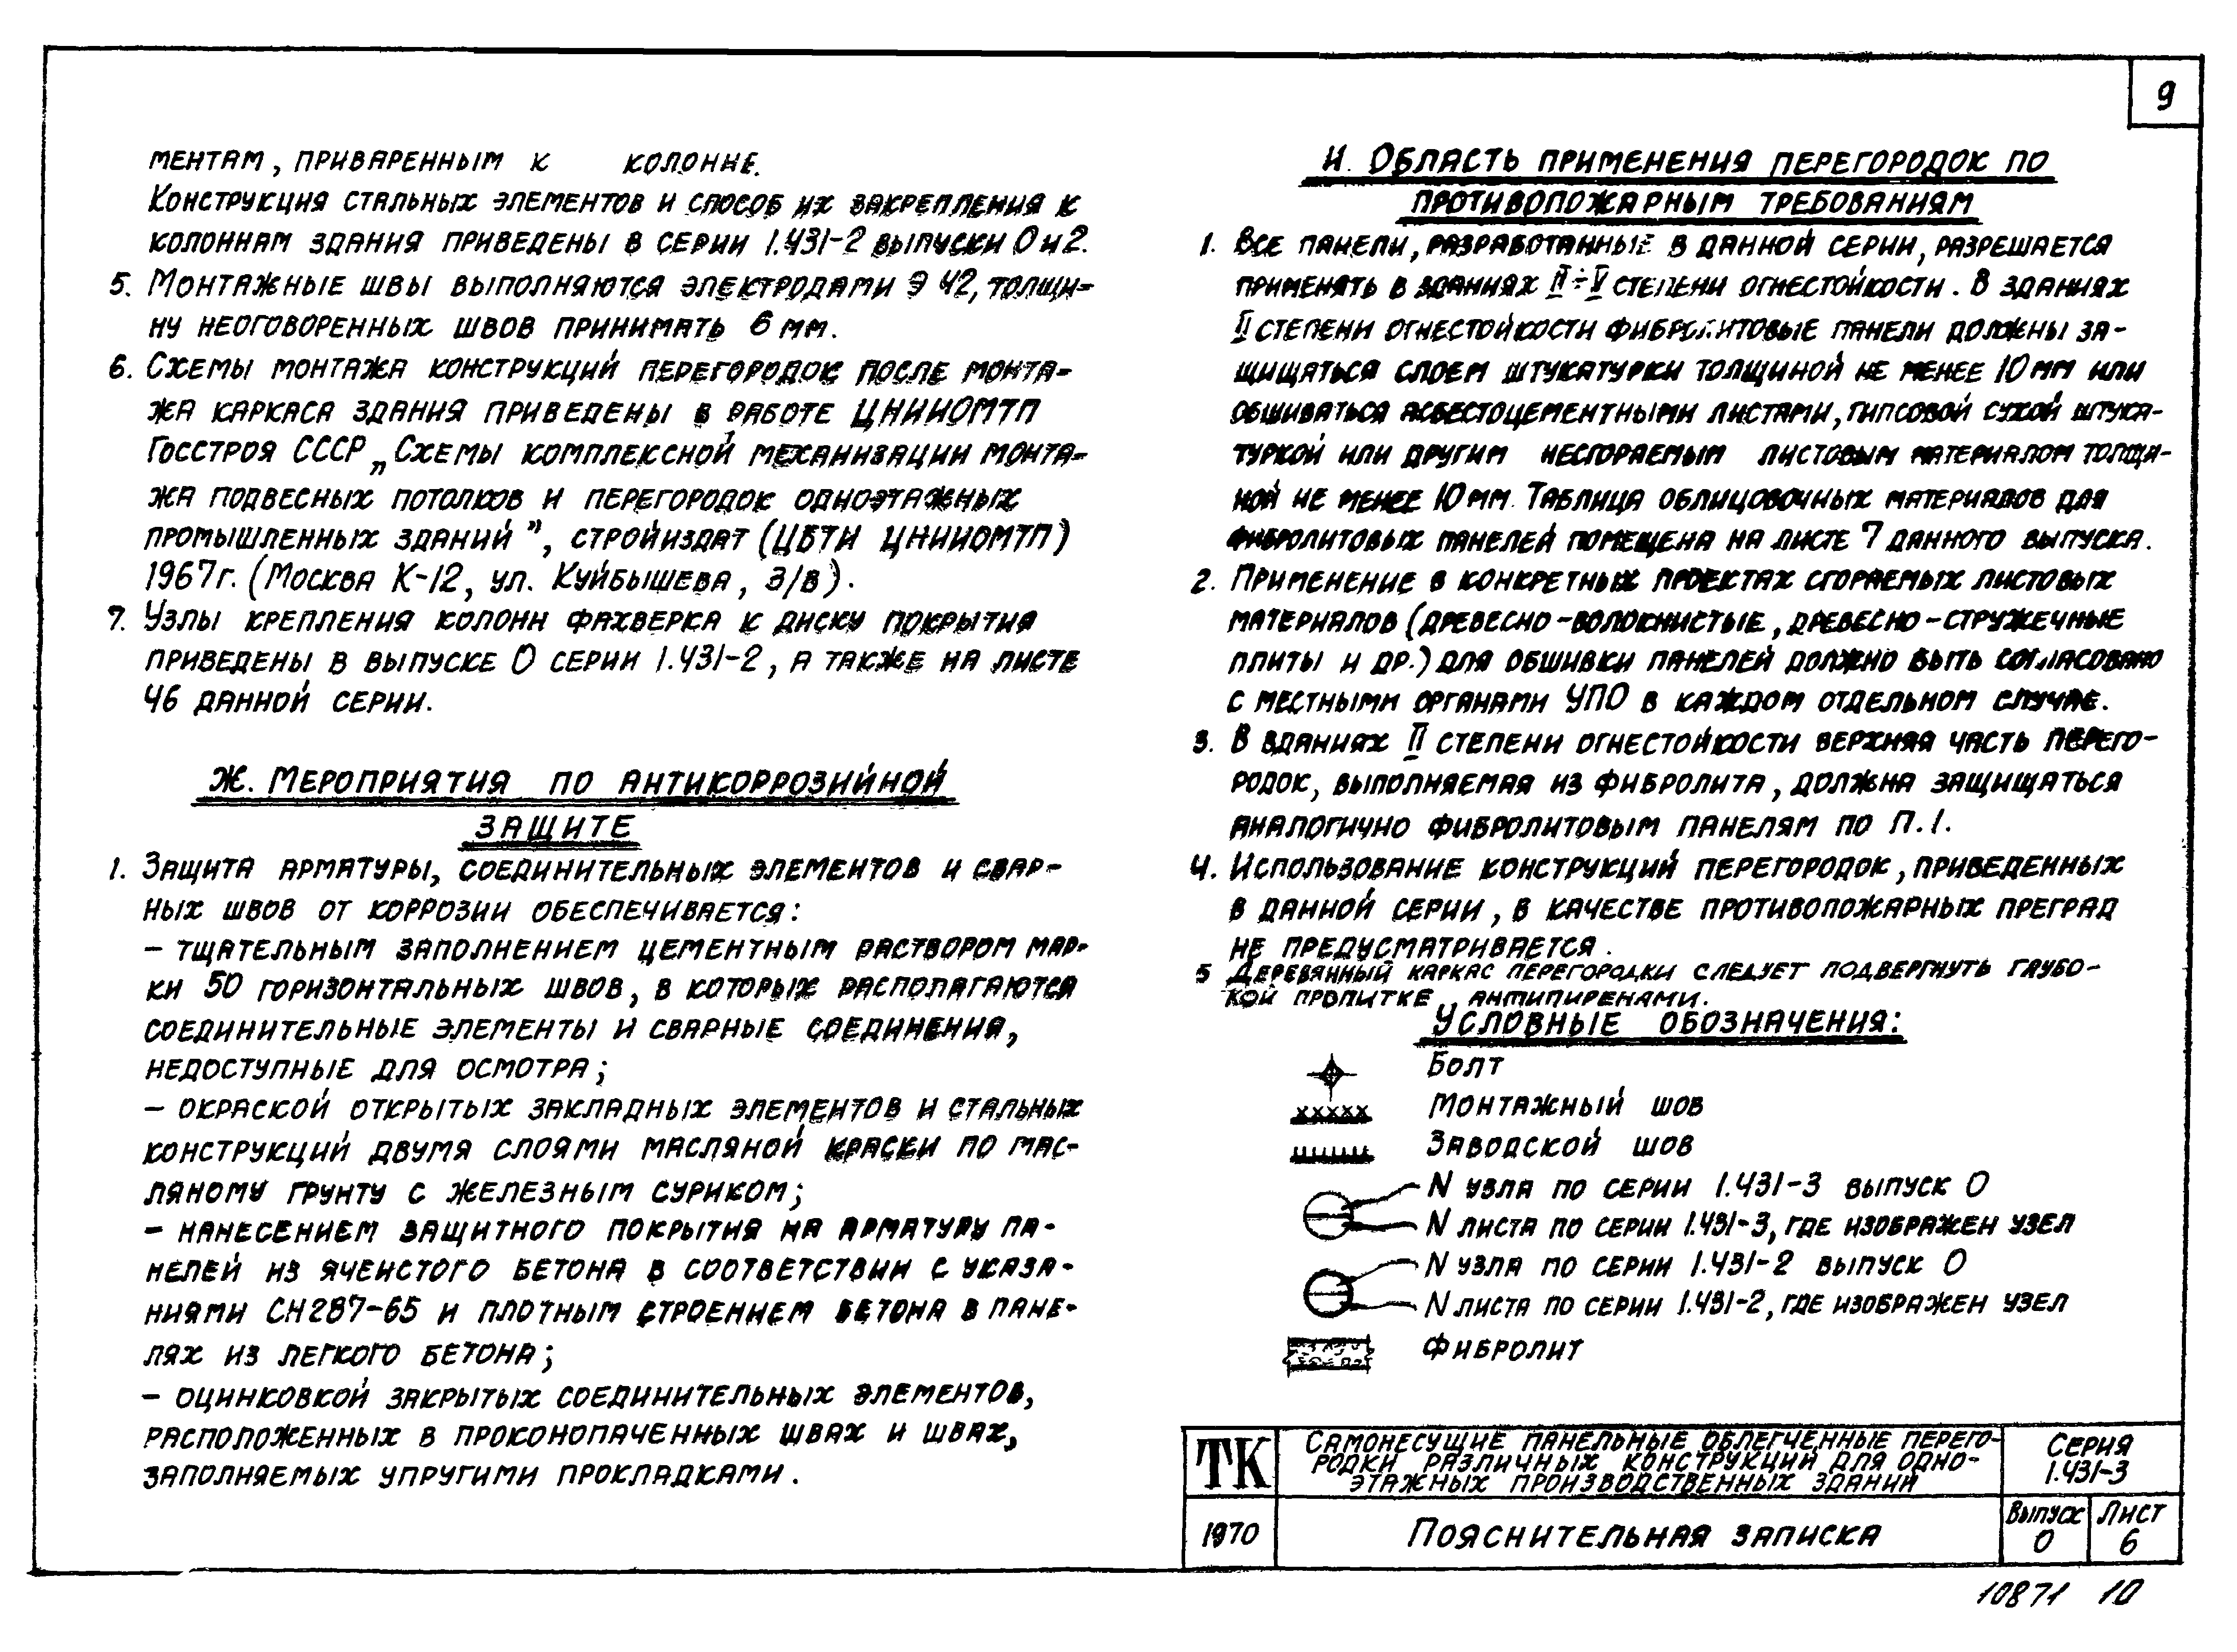 9
ментам, приваренным к колонне.
Конструкция стальных элементов и способ их закрепления к
колоннам здания приведены в серии 1.431-2 выпуски 0 и 2.
5. Монтажные швы выполняются электродами Э 42, толщи-
ну неоговоренных швов принимать 6 мм.
6. Схемы монтажа конструкций перегородок после монта-
жа каркаса здания приведены в работе ЦНИИОМТП
Госстроя СССР „Схемы комплексной механизации монта-
жа подвесных потолков и перегородок одноэтажных
промышленных зданий", стройиздат (ЦБТИ ЦНИИОМТП)
1967г. (Москва К-12, ул. Куйбышева, 3/8).
7. Узлы крепления колонн фахверка к диску покрытия
приведены в выпуске 0 серии 1.431-2, а также на листе
46 данной серии.
Ж. Мероприятия по антикоррозийной
защите
1. Защита арматуры, соединительных элементов и свар-
ных швов от коррозии обеспечивается:
– тщательным заполнением цементным раствором мар-
ки 50 горизонтальных швов, в которых располагаются
соединительные элементы и сварные соединения,
недоступные для осмотра;
– окраской открытых закладных элементов и стальных
конструкций двумя слоями масляной краски по мас-
ляному грунту с железным суриком;
– нанесением защитного покрытия на арматуру па-
нелей из ячеистого бетона в соответствии с указа-
ниями СН287-65 и плотным строением бетона в пане-
лях из легкого бетона;
– оцинковкой закрытых соединительных элементов,
расположенных в проконопаченных швах и швах,
заполняемых упругими прокладками.
И. Область применения перегородок по
противопожарным требованиям
1. Все панели, разработанные в данной серии, разрешается
применять в зданиях II ÷ V степени огнестойкости. В зданиях
II степени огнестойкости фибролитовые панели должны за-
щищаться слоем штукатурки толщиной не менее 10 мм или
обшиваться асбестоцементными листами, гипсовой сухой штука-
туркой или другим несгораемым листовым материалом толщи-
ной не менее 10 мм. Таблица облицовочных материалов для
фибролитовых панелей помещена на листе 7 данного выпуска.
2. Применение в конкретных проектах сгораемых листовых
материалов (древесно-волокнистые, древесно-стружечные
плиты и др.) для обшивки панелей должно быть согласовано
с местными органами УПО в каждом отдельном случае.
3. В зданиях II степени огнестойкости верхняя часть перего-
родок, выполняемая из фибролита, должна защищаться
аналогично фибролитовым панелям по п.1.
4. Использование конструкций перегородок, приведенных
в данной серии, в качестве противопожарных преград
не предусматривается.
5 Деревянный каркас перегородки следует подвергнуть глубо-
кой пропитке антипиренами.
Условные обозначения:
Болт
Монтажный шов
Заводской шов
N узла по серии 1.431-3 выпуск 0
N листа по серии 1.431-3, где изображен узел
N узла по серии 1.431-2 выпуск 0
N листа по серии 1.431-2, где изображен узел
Фибролит
ТК
Самонесущие панельные облегченные перего-
родки различных конструкций для одно-
этажных производственных зданий
Серия
1.431-3
1970
Пояснительная записка
Выпуск
0
Лист
6
10871 10